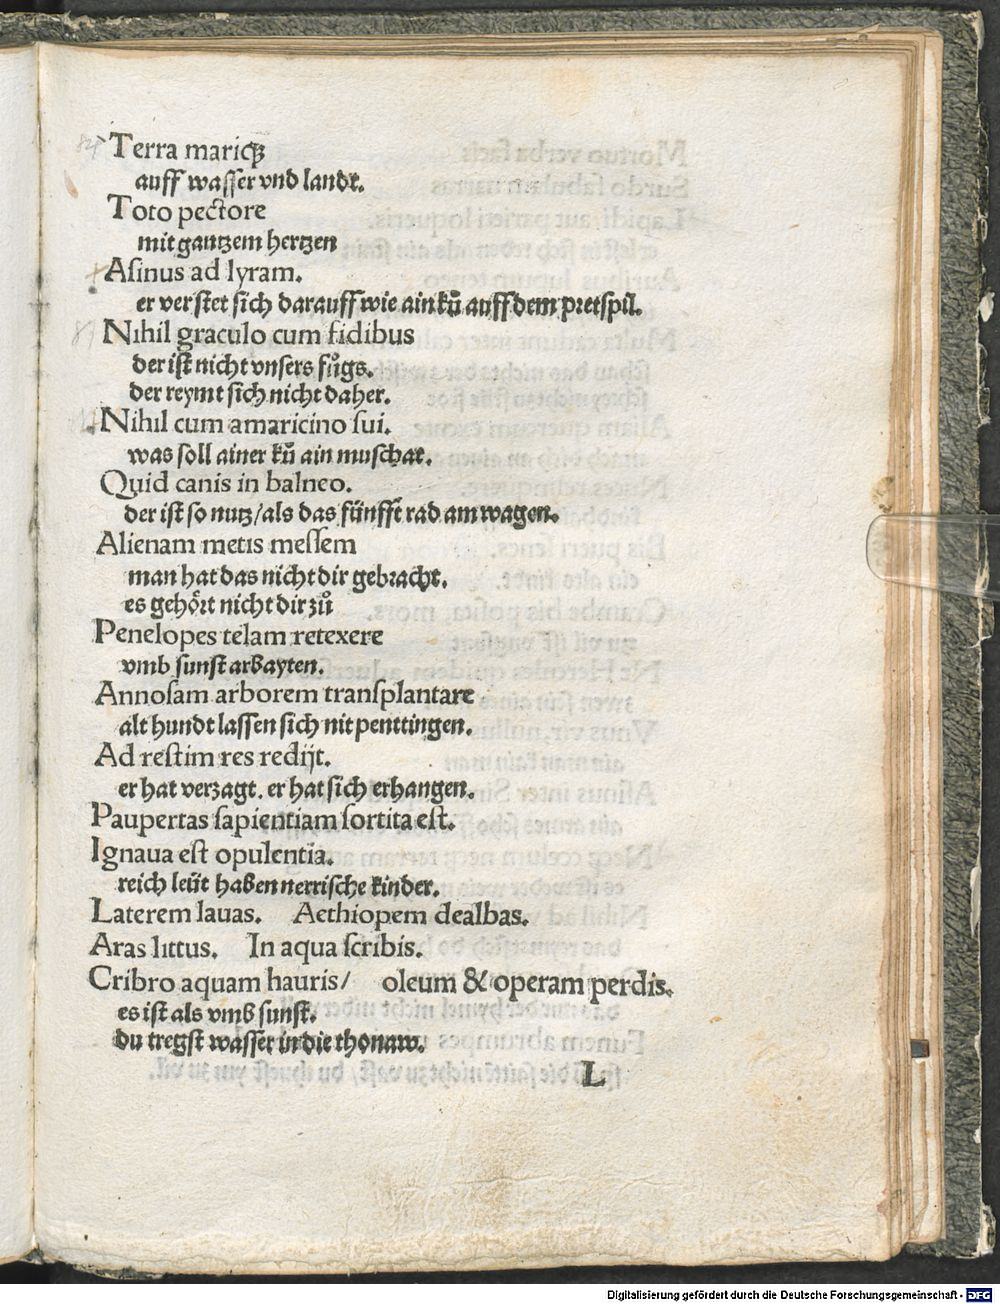 Terra mariqꝫ
auff wasser vnd landt.
Toto pectore
mit gantzem hertzen
Asinus ad lyram.
er verstet sich darauff wie ain ků auff dem pretspil.
Nihil graculo cum fidibus
der ist nicht vnsers fůgs.
der reymt sich nicht daher.
Nihil cum amaricino sui.
was soll ainer ků ain muschat.
Quid canis in balneo.
der ist so nutz/als das fünfft rad am wagen.
Alienam metis messem
man hat das nicht dir gebracht.
es gehört nicht dir zů
Penelopes telam retexere
vmb sunst arbayten.
Annosam arborem transplantare
alt hundt lassen sich nit penttingen.
Ad restim res redijt.
er hat verzagt. er hat sich erhangen.
Paupertas sapientiam sortita est.
Ignaua est opulentia.
reich leüt haben nerrische kinder.
Laterem lauas. Aethiopem dealbas.
Aras littus. In aqua scribis.
Cribro aquam hauris/ oleum & operam perdis.
es ist als vmb sunst.
du tregst wasser in die thonaw.
L
Digitalisierung gefördert durch die Deutsche Forschungsgemeinschaft - DFG